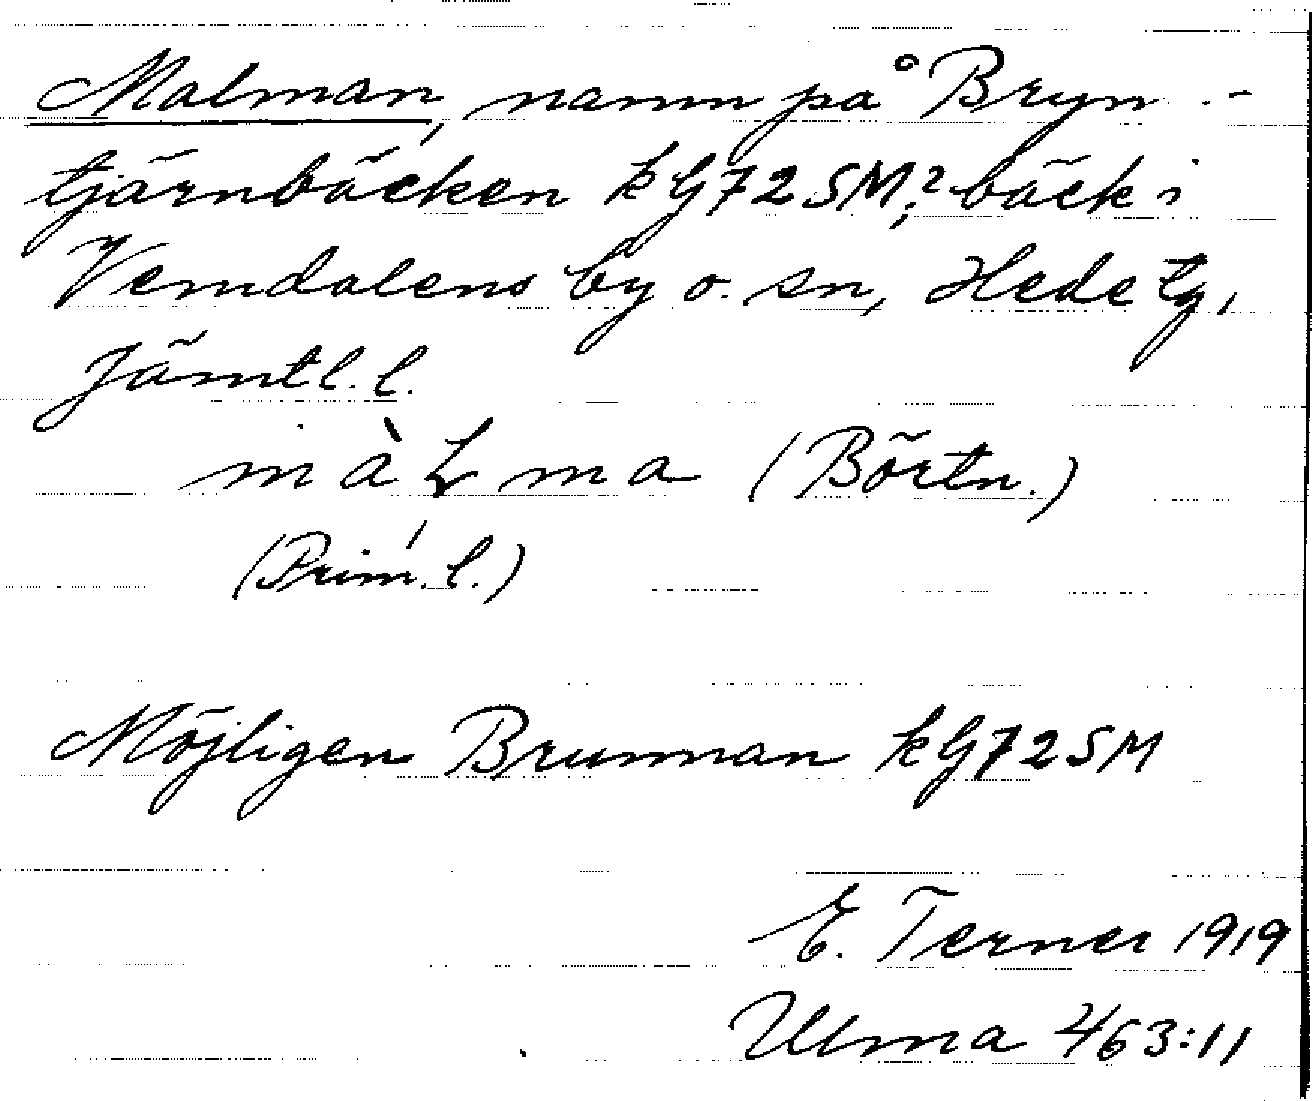 Malman, namn på Bryn-
tjärnbäcken kG72SM,? bäck i
Vemdalens by o. sn, Hede tg,
Jämtl. l.
màLma (Börtn.)
(Prim. l.)
Möjligen Brunnan kG72SM
E. Terner 1919
Ulma 463:11